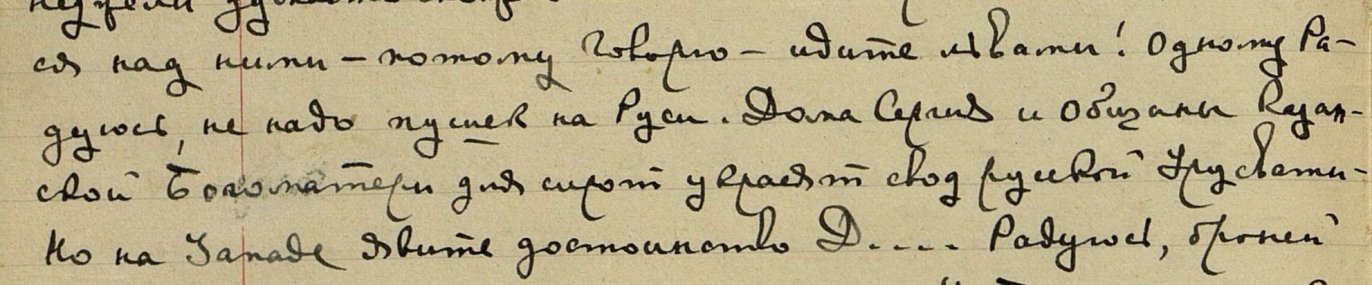 ся над ними – потому говорю – идите львами! Одному Ра-
дуюсь, не надо пушек на Руси. Дома Сергия и Общины Казан-
ской Богоматери для сирот украсят свод русской Урусвати-
Но на Западе явите достоинство D.... Радуюсь, броней